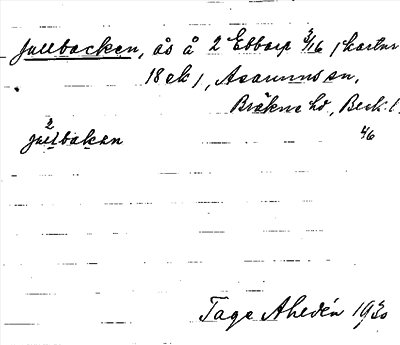 Jullbacken, ås å 2 Ebbarp 3/16 (kartan
18 ek), Asarums sn,
Bräkne hd, Blek. l.
julbakan 4/6
Tage Ahldén 1930